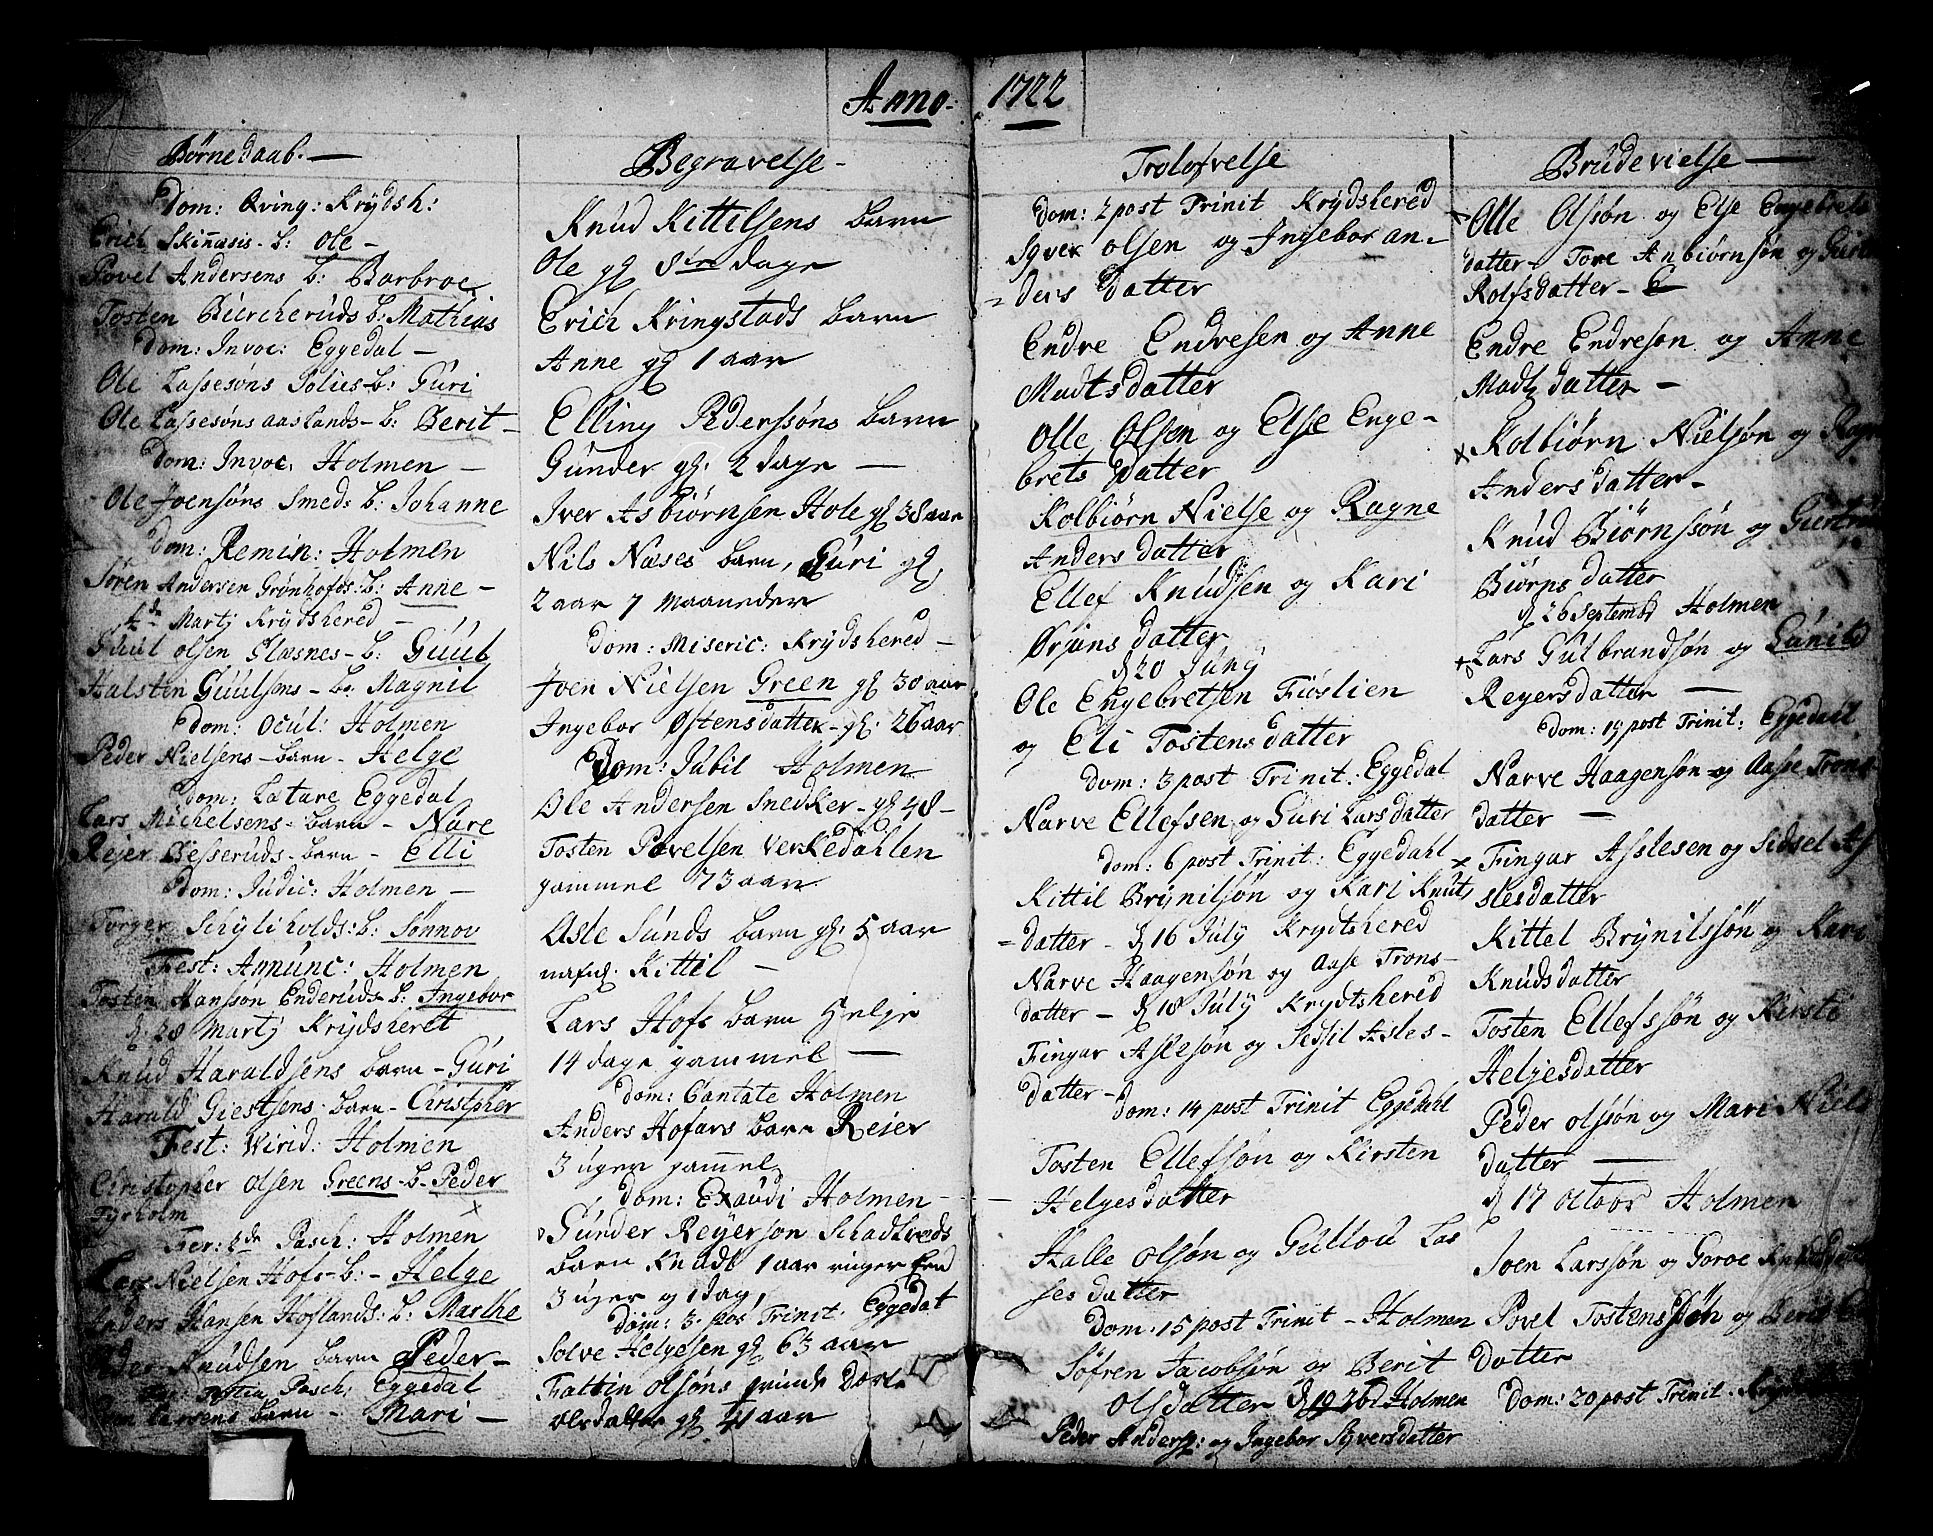 Anno: 1722
Børnedaab.
Dom: Qving: Krÿdsh:
Erich Skiñasis - b: Ole -
Povel Andersens b: Barbroe
Tosten Biürcherüds b: Mathias
Dom: Invoc: Eggedal -
Ole Lassesøns b: Güri
Ole Lassesøns aaslands - b: Berit -
Dom: Invoc. Holmen -
Ole Joensøns Smeds b: Johanne
Dom: Remin: Holmen
Søren Andersen Grønhofds - b: Anne -
4de Martÿ Krÿdshered -
olsen Glæsnes - b: Güül
Halsten Güülsens - b: Magnil
Dom: Ocul: Holmen
Peder Nielsens - barn - Helge
Dom: Lætare Eggedal
Lars Michelsens - barn - Nare
Rejer Besserüds - barn - Elli
Dom: Jüdic: Holmen -
Torger b: Sønnov
Fest: Annünc: Holmen
Tosten Hanssøn Enderüds b: Ingebor
d: 28 Martÿ Krÿdsheret
Knüd Haraldsens barn - Güri
Harald Giestsens barn - Christpher
Fest: Virid: Holmen
Christopher olsen Greens - b - Peder
Tyrholm
Fer: 2de Pasch: Holmen
Nielsen Hofs - b: - Helge
Anders Hansen Hoflands: b: Marthe
Peder Knüdsen barn Peder -
Pasch: Eggedal
Larsens barn - Mari -
Begravelse -
Knud Kittilsens barn
Ole gl 8te dage
Erich Kringstads barn
Anne gl 1 aar
Elling Pederssøns barn
Gunder gl. 2 dage -
Iver Asbiørnsen Hole gl 38 aar
Nils Næses barn, Güri gl,
2 aar 7 maaneder
Dom: Miseric: Krÿdshered -
Joen Nielsen Green gl 30 aar
Ingebor Østensdatter - gl. 26 aar
Dom: Jübil Holmen
Ole Andersen Snedker - gl 48 -
Tosten Povelsen Verkedahlen
gammel 73 aar
Asle Sünds barn gl. 5 aar
nafnl. Kittil -
Lars Hofs barn Helje
14 dage gammel -
Dom: Cantate Holmen
Anders Hofars barn Reier
3 uger gammel
Dom: Exaüdi Holmen -
Günder Reÿersøn
barn Knudt 1 aar
3 uger og 1 dag,
Dom: 3. pos Trinit. Eggedal
Solve Helgesen gl 63 aar
Fattin olsøns qvinde
olsdatter gl 41 aar
Trolofvelse
Dom: 2 post Trinit Krÿdshered
Sÿver olsen og Ingebor an-
= ders Datter
Endre Endresen og Anne
Madtsdatter
Olle Olsen og Else Enge-
brets Datter
Kolbiørn Nielse og Ragne
Anders datter
Ellef Knüdsen og Kari
Ørjans datter
d 20 Jünÿ
Ole Engebretsen Fiøslien
og Eli Tostensdatter
Dom: 3 post Trinit: Eggedal
Narve Ellefsen og Güri Larsdatter
Dom: 6 post Trinit: Eggedahl
Kittil Brÿnilsøn og Kari Knuts
= datter - d 16 Jülÿ Krÿdtshered
Narve Haagensøn og Aase Trons-
datter - d 18 Jülÿ Krÿdtshered
Fingar Aslesøn og Sessil Asles-
datter -
Dom: 14 post Trinit Eggedahl
Tosten Ellefsøn og Kirsten
Helgesdatter
Halle olsøn og Güllou Las
ses datter
Dom: 15 post Trinit - Holmen
Søfren Jacobsøn og Berit
Olsdatter Holmen
Peder og Ingebor Sÿversdatter
Brüdevielse -
Olle Olssøn og Else Engebrets
datter - Tore Anbiørnsøn og
Rolfsdatter -
Endre Endresøn og Anne
Madtz datter -
Kolbiørn Nielsøn og
Andersdatter -
Knüd Biørnssøn og
Biørns datter
d 26 Septembr Holmen
Lars Gülbrandsøn og Günild
Reÿersdatter -
Dom: 19 post Trinit: Eggedahl
Narve Haagensøn og Aase Trons
datter -
Fingar Asslesen og Sidsel As
slesdatter
Kittel Brÿnilssøn og Kari
Knüdsdatter
Tosten Ellefssøn og Kirsti
Helgesdatter
Peder olssøn og Mari Niels
datter -
d 17 Holmen
Joen Larssøn og Goroe
Povel Tostenssøn og Berit
datter
Dom: 20 post Trinit.